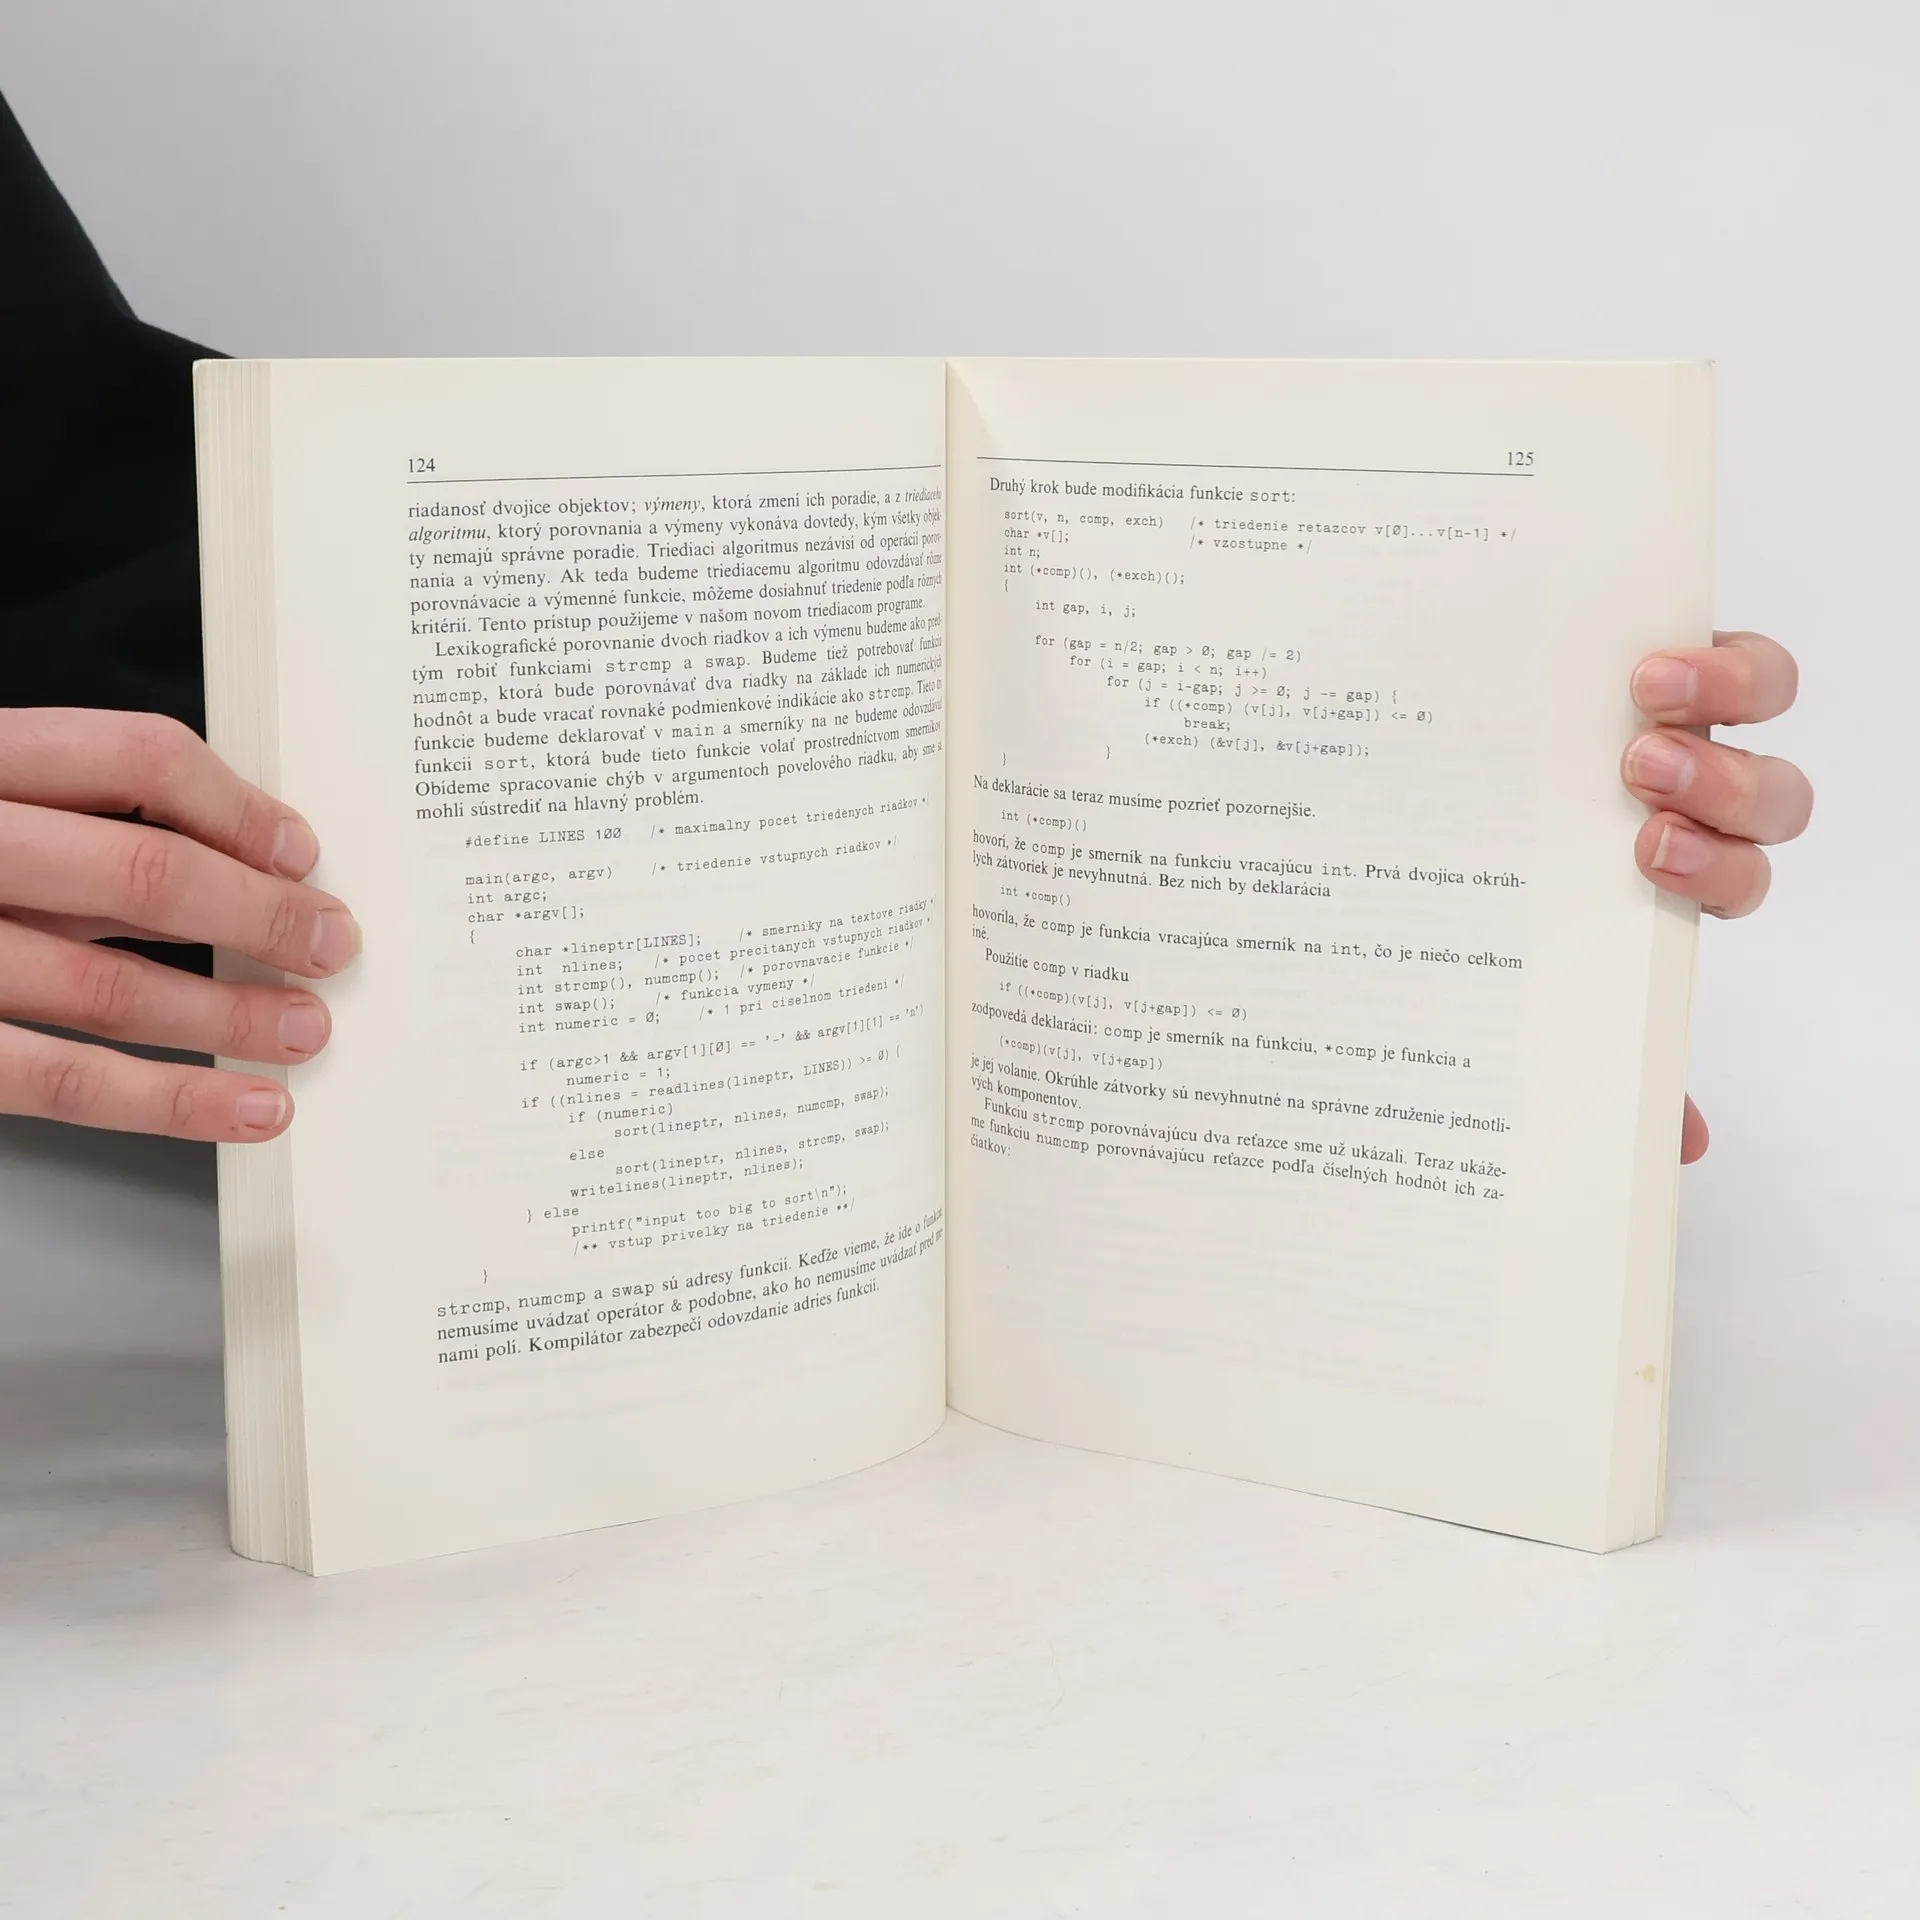 124
riadanosť dvojice objektov; výmeny, ktorá zmení ich poradie, a z triediaceho
algoritmu, ktorý porovnania a výmeny vykonáva dovtedy, kým všetky objek-
ty nemajú správne poradie. Triediaci algoritmus nezávisí od operácií porov-
nania a výmeny. Ak teda budeme triediacemu algoritmu odovzdávať rôzne
porovnávacie a výmenné funkcie, môžeme dosiahnuť triedenie podľa rôznych
kritérií. Tento prístup použijeme v našom novom triediacom programe.
Lexikografické porovnanie dvoch riadkov a ich výmenu budeme ako pred-
tým robiť funkciami strcmp a swap. Budeme tiež potrebovať funkciu
numcmp, ktorá bude porovnávať dva riadky na základe ich numerických
hodnôt a bude vracať rovnaké podmienkové indikácie ako strcmp. Tieto tri
funkcie budeme deklarovať v main a smerníky na ne budeme odovzdávať
funkcii sort, ktorá bude tieto funkcie volať prostredníctvom smerníkov.
Obídeme spracovanie chýb v argumentoch povelového riadku, aby sme sa
mohli sústrediť na hlavný problém.
#define LINES 100 /* maximalny pocet triedenych riadkov */
main(argc, argv) /* triedenie vstupnych riadkov */
int argc;
char *argv[];
{
char *lineptr[LINES]; /* smerniky na textove riadky *
int nlines; /* pocet precitanych vstupnych riadkov *
int strcmp(), numcmp(); /* porovnavacie funkcie */
int swap(); /* funkcia vymeny */
int numeric = 0; /* 1 pri ciselnom triedeni */
if (argc>1 && argv[1][0] == '-' && argv[1][1] == 'n')
numeric = 1;
if ((nlines = readlines(lineptr, LINES)) >= 0) {
if (numeric)
sort(lineptr, nlines, numcmp, swap);
else
sort(lineptr, nlines, strcmp, swap);
writelines(lineptr, nlines);
} else
printf("input too big to sort\n");
/** vstup privelky na triedenie **/
}
strcmp, numcmp a swap sú adresy funkcií. Keďže vieme, že ide o funkcie,
nemusíme uvádzať operátor & podobne, ako ho nemusíme uvádzať pred
nami polí. Kompilátor zabezpečí odovzdanie adries funkcií.
125
Druhý krok bude modifikácia funkcie sort:
sort(v, n, comp, exch) /* triedenie retazcov v[0]...v[n-1] */
char *v[]; /* vzostupne */
int n;
int (*comp)(), (*exch)();
{
int gap, i, j;
for (gap = n/2; gap > 0; gap /= 2)
for (i = gap; i < n; i++)
for (j = i-gap; j >= 0; j -= gap) {
if ((*comp) (v[j], v[j+gap]) <= 0)
break;
(*exch) (&v[j], &v[j+gap]);
}
}
Na deklarácie sa teraz musíme pozrieť pozornejšie.
int (*comp)()
hovorí, že comp je smerník na funkciu vracajúcu int. Prvá dvojica okrúh-
lych zátvoriek je nevyhnutná. Bez nich by deklarácia
int *comp()
hovorila, že comp je funkcia vracajúca smerník na int, čo je niečo celkom
iné.
Použitie comp v riadku
if ((*comp)(v[j], v[j+gap]) <= 0)
zodpovedá deklarácii: comp je smerník na funkciu, *comp je funkcia a
(*comp)(v[j], v[j+gap])
je jej volanie. Okrúhle zátvorky sú nevyhnutné na správne združenie jednotli-
vých komponentov.
Funkciu strcmp porovnávajúcu dva reťazce sme už ukázali. Teraz ukáže-
me funkciu numcmp porovnávajúcu reťazce podľa číselných hodnôt ich za-
čiatkov: